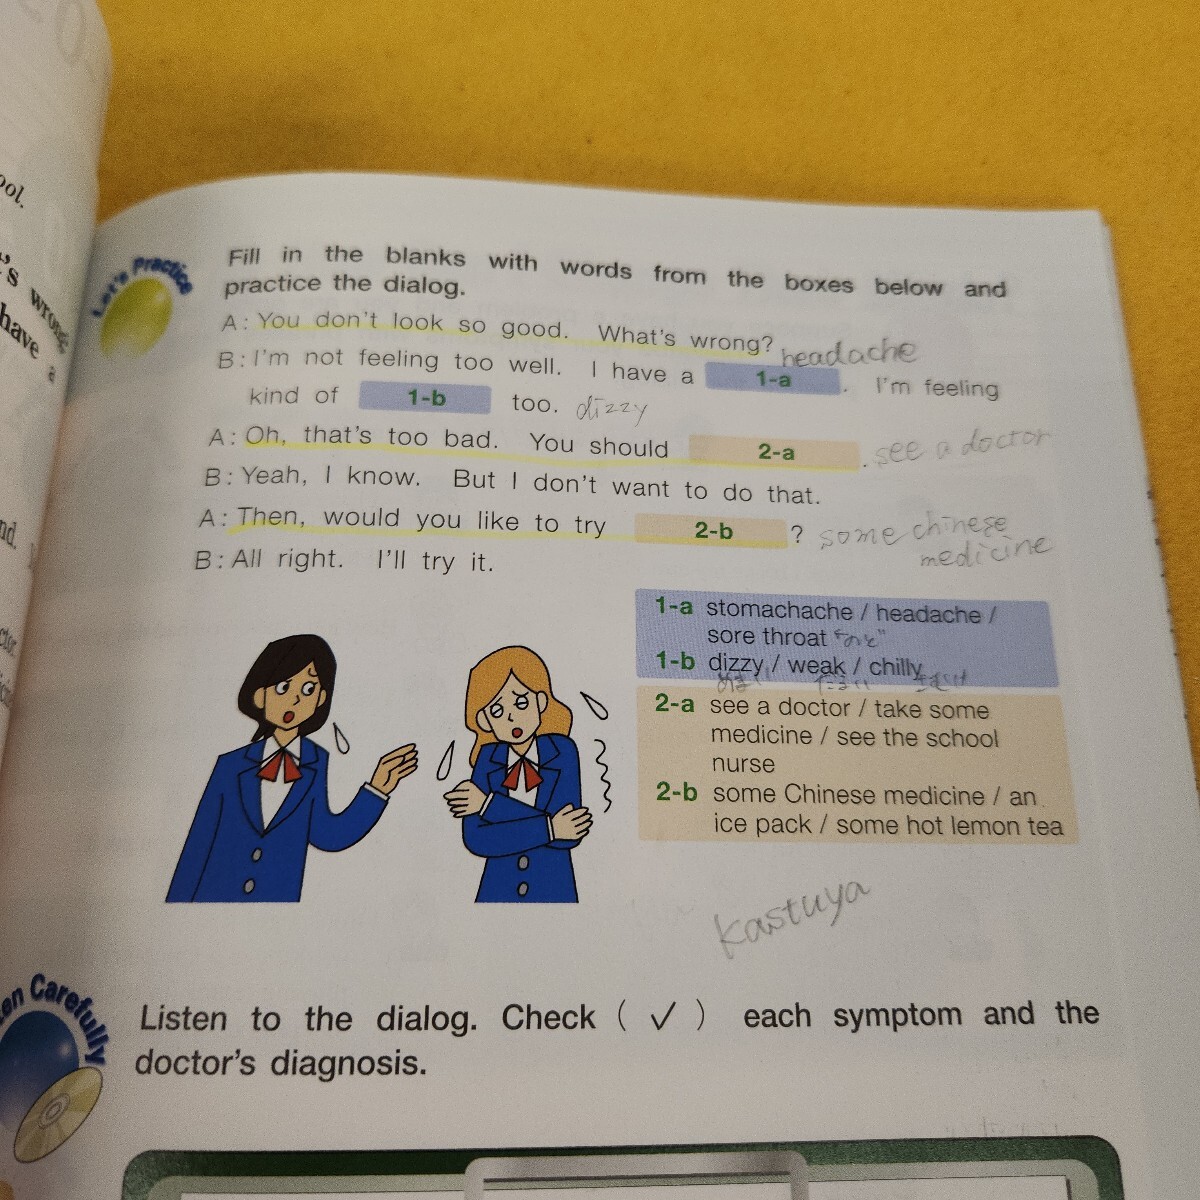 ool.
's wrong
have a
nd.
Let's Practice
Fill in the blanks with words from the boxes below and
practice the dialog.
A: You don't look so good. What's wrong?
headache
B: I'm not feeling too well. I have a 1-a . I'm feeling
kind of 1-b too. dizzy
A: Oh, that's too bad. You should 2-a . see a doctor
B: Yeah, I know. But I don't want to do that.
A: Then, would you like to try 2-b ? some chinese
medicine
B: All right. I'll try it.
1-a stomachache / headache /
sore throat
1-b dizzy / weak / chilly
2-a see a doctor / take some
medicine / see the school
nurse
2-b some Chinese medicine / an
ice pack / some hot lemon tea
kastuya
Carefully
Listen to the dialog. Check ( ✓ ) each symptom and the
doctor's diagnosis.